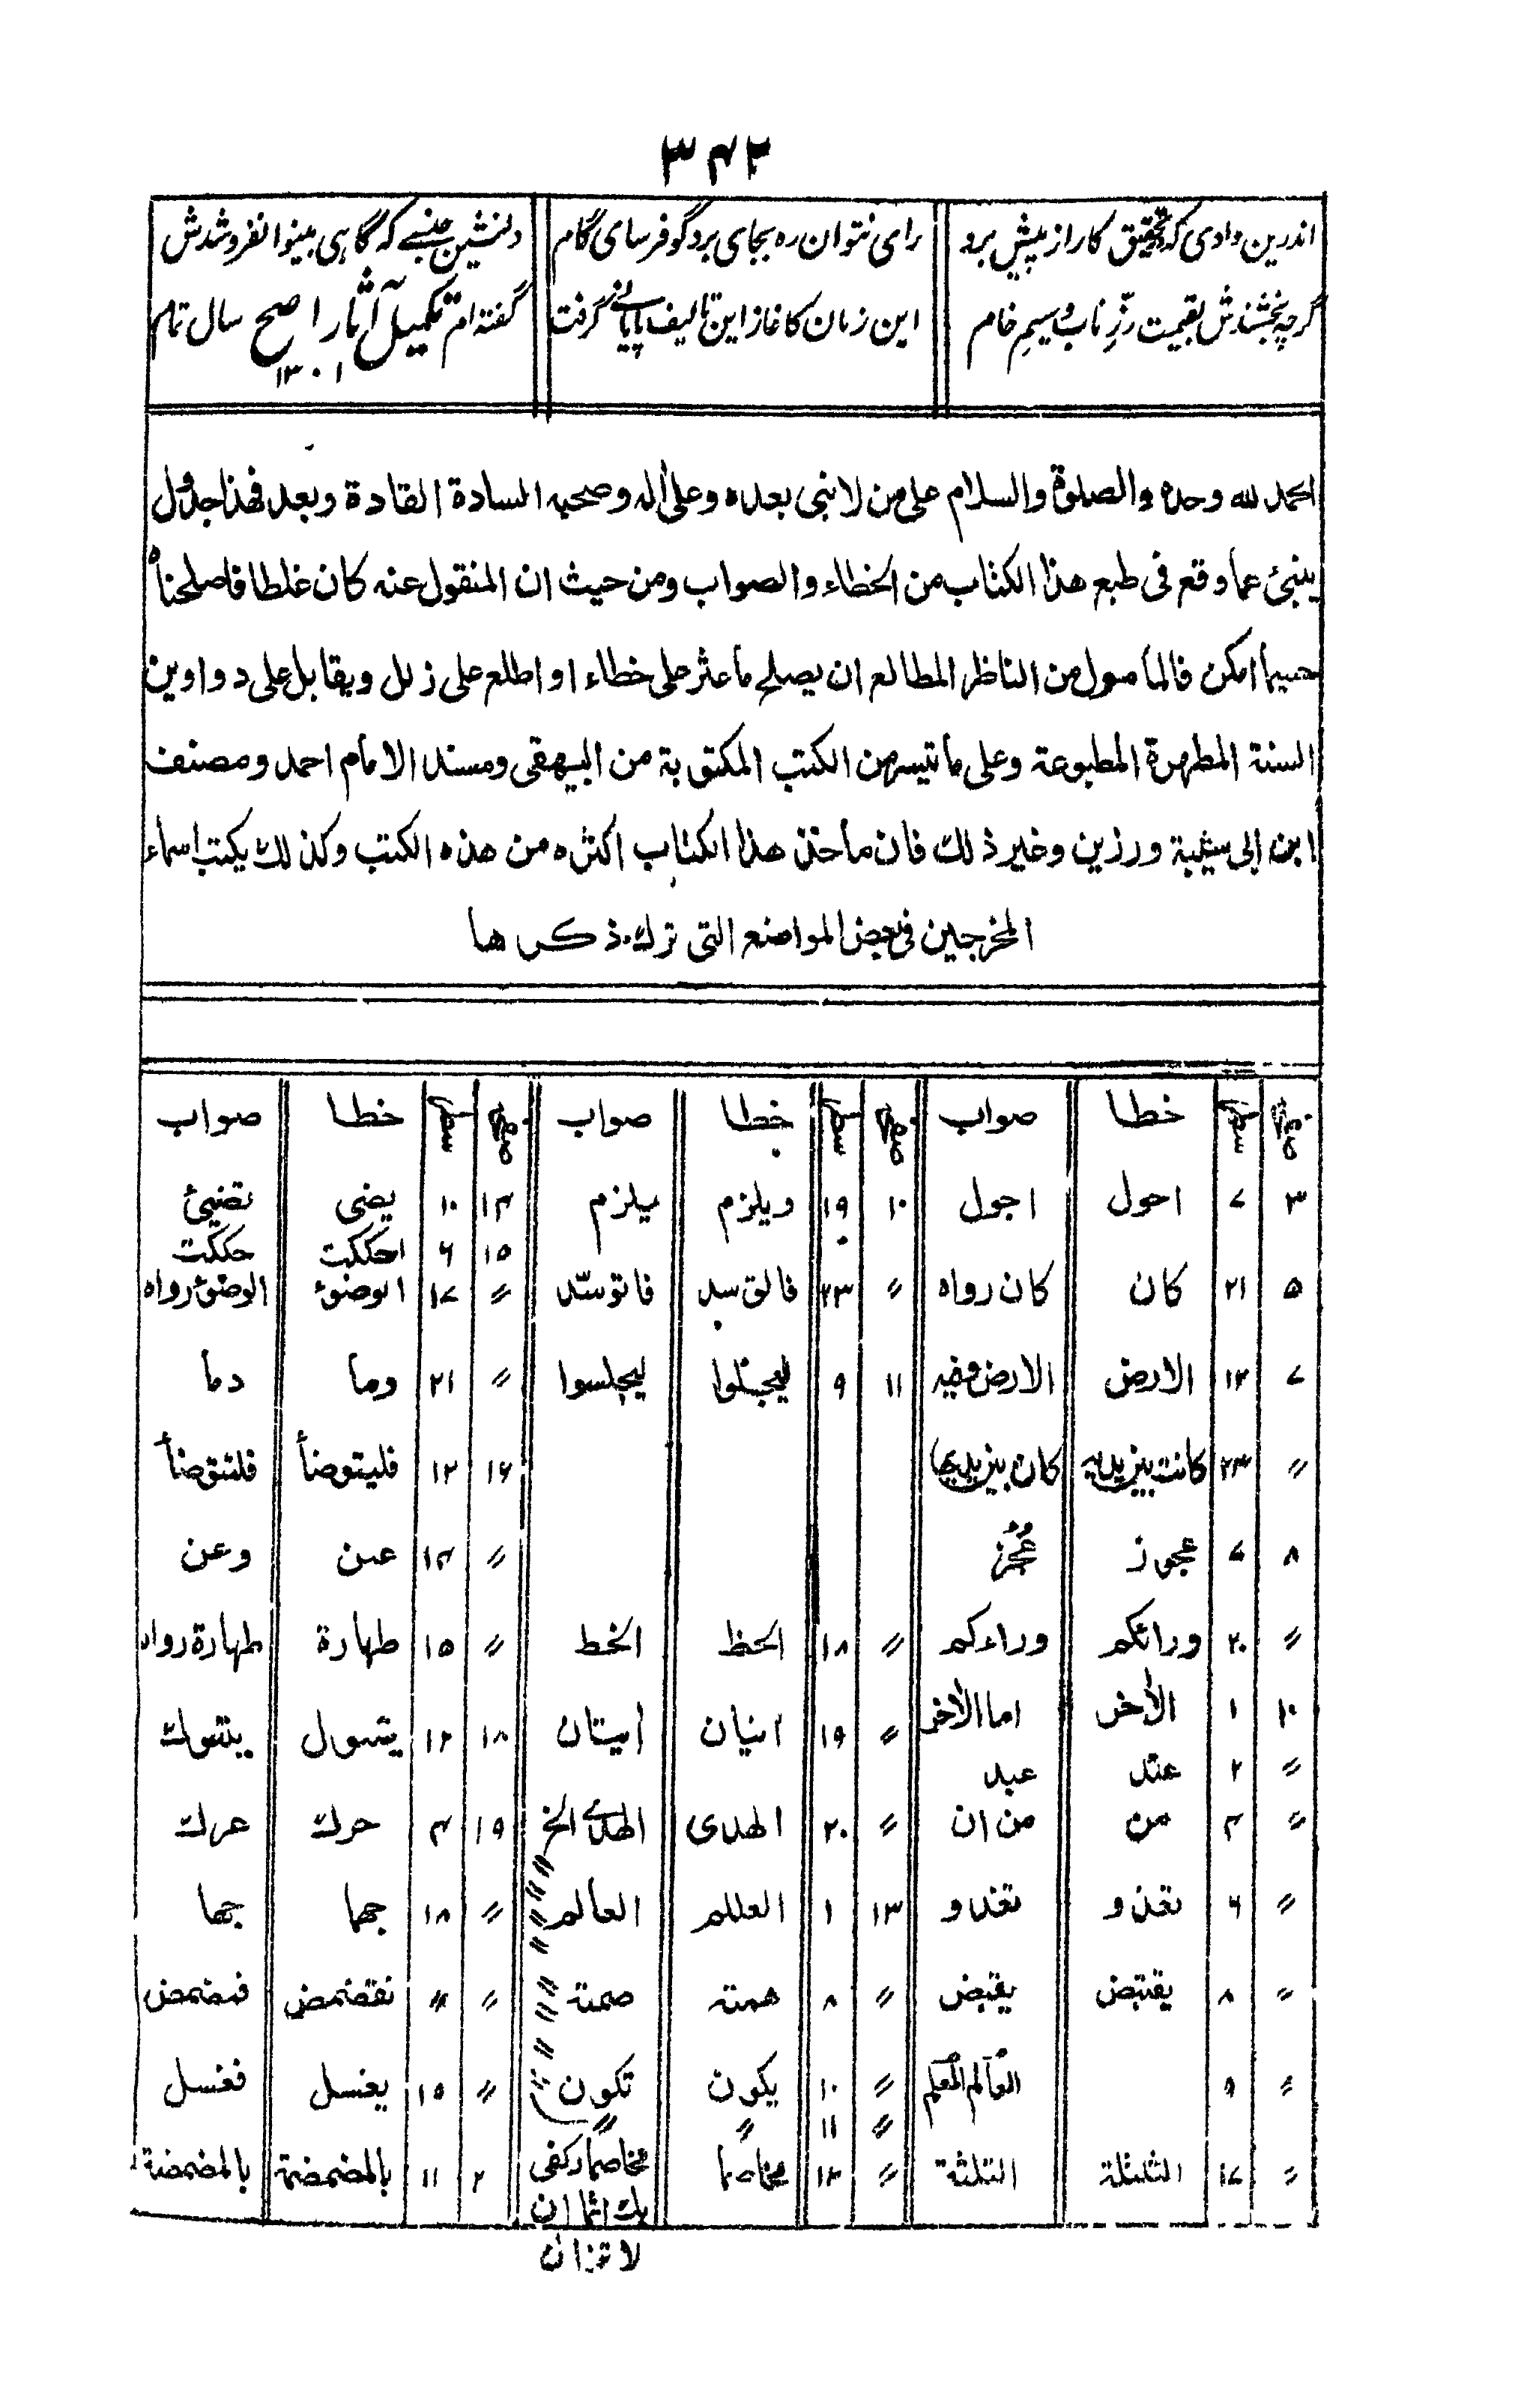 ٣٤٢
اندرین وادی که تحقیق کار از پیش برد رای نتوان ره بجای برد گو فرسای گام دلنشین جنسے که گاہی بینوا نفروشدش
گرچہ بخشندش بقیمت زرِّ ناب و سیمِ خام این زمان کاغاز این تالیف پایانے گرفت گفته ام تکمیل آثار اصح سال تمام
١٣٠١
الحمد لله وحده والصلوة والسلام على من لا نبى بعده وعلى اله وصحبه السادة القادة وبعد فهذا جدول
ينبئ عما وقع فى طبع هذا الكتاب من الخطاء والصواب ومن حيث ان المنقول عنه كان غلطا فاصلحناه
حسبما امكن فالمأمول من الناظر المطالع ان يصلح ما عثر على خطاء او اطلع على زلل ويقابل على دواوين
السنة المطهرة المطبوعة وعلى ما تيسر من الكتب المكتوبة من البيهقى ومسند الامام احمد ومصنف
ابن ابى شيبة ورزين وغير ذلك فان مأخذ هذا الكتاب اكثره من هذه الكتب وكذلك يكتب اسماء
المخرجين فى بعض المواضع التى ترك ذكرها
صفحہ سطر خطا صواب صفحہ سطر خطا صواب صفحہ سطر خطا صواب
٣ ٧ احول اجول ١٠ ١٩ ويلزم يلزم ١٤ ١٠ يضى تضيئ
١٥ ٦ احككت حككت
٥ ٢١ كان كان رواه 〃 ٢٣ فالق سد فاتوسّد 〃 ١٧ الوضوء الوضوء رواه
٧ ١٢ الارض الارض وفيه ١١ ٩ ليجثلوا ليجلسوا 〃 ٢١ وما دما
〃 ٢٣ كانت بين يديه كان بين يديها ١٦ ١٢ فليتوضأ فلتتوضأ
٨ ٧ عجوز عُجُز 〃 ١٤ عن وعن
〃 ٢٠ ورائكم وراءكم 〃 ١٨ الحظ الخط 〃 ١٥ طهارة طهارة رواه
١٠ ١ الأخر اما الأخر 〃 ١٩ انيان اميتان ١٨ ١٢ يتسول يتسوك
〃 ٢ عند عبد
〃 ٤ من من ان 〃 ٢٠ الهدى الهدى الخ ١٩ ٤ حرك عرك
〃 ٦ تغذو تغدو ١٣ ١ العللم العالم 〃 ١٨ جهما بهما
〃 ٨ يقتبض يقبض 〃 ٨ همته صمته 〃 〃 نقضمض فمضمض
〃 ٩ العالم المعلم 〃 ١٠ يكون تكون 〃 ١٥ يغسل فغسل
〃 ١١ 〃 〃
〃 ١٧ الثلثلة الثلثة 〃 ١٢ مخاصما مخاصما وكفى ٢ ١١ بالمضمضة بالمضمضة
بك اثما ان
لا تزال